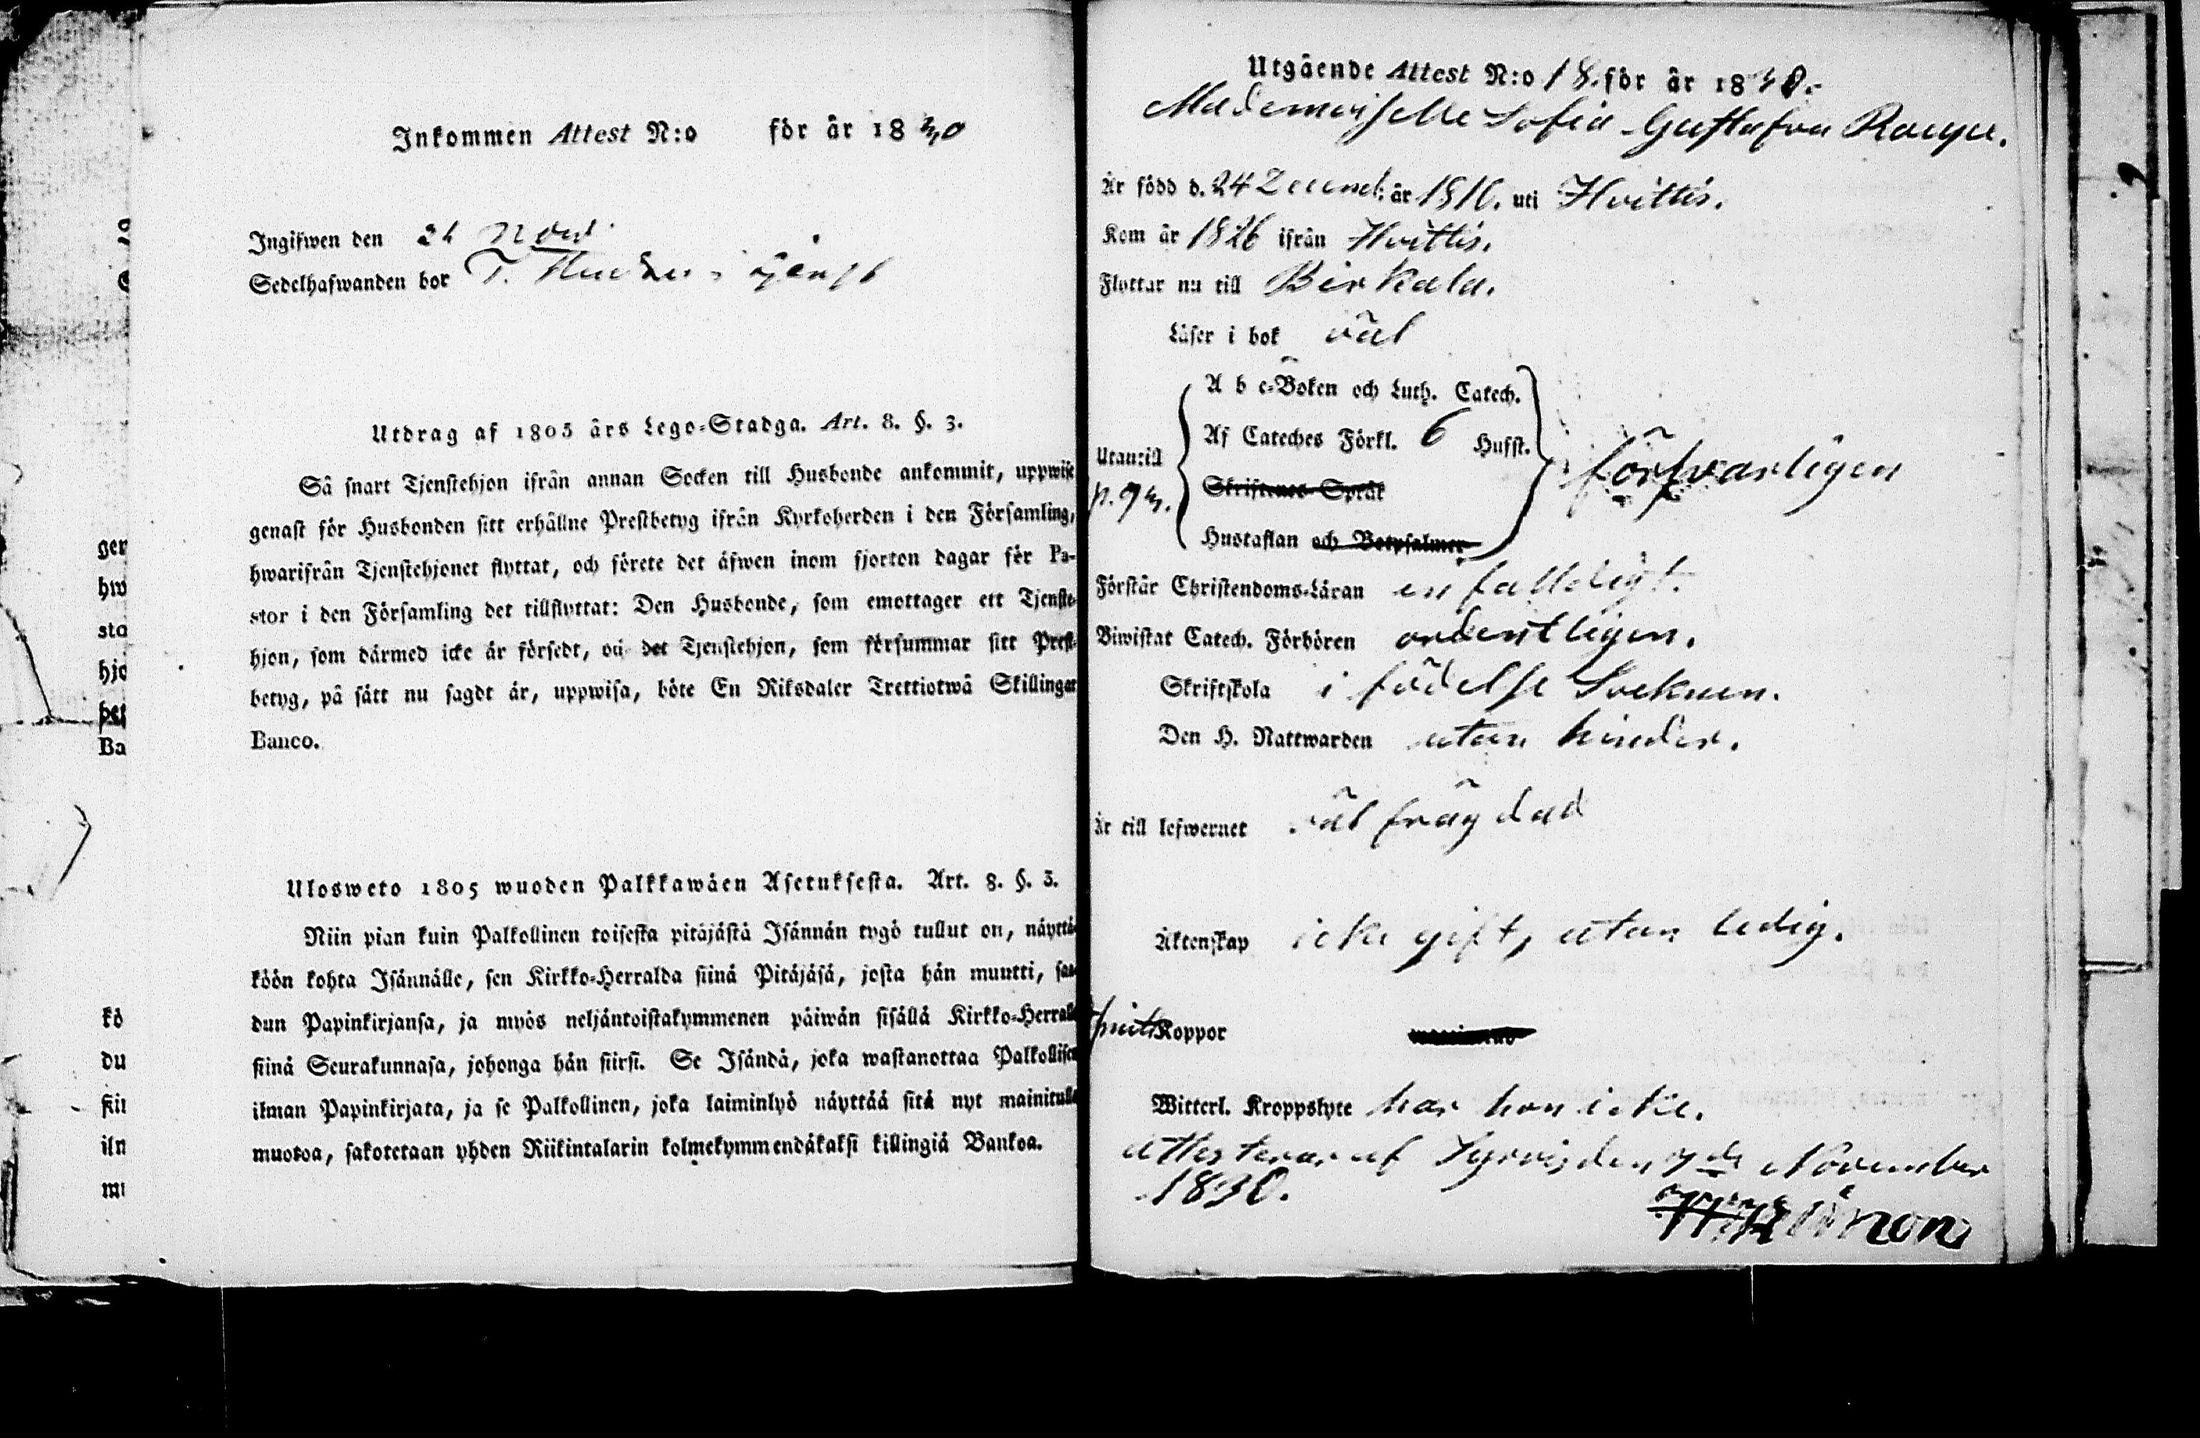 Inkommen Attest N:o för år 1830
Ingifwen den 21 Nov.
Sedelhafwanden bor T. i tjenst
Utdrag af 1805 års Lego-Stadga. Art. 8. §. 3.
Så snart Tjenstehjon ifrån annan Socken till Husbonde ankommit, uppwise
genast för Husbonden sitt erhållne Prestbetyg ifrån Kyrkoherden i den Församling,
hwarifrån Tjenstehjonet flyttat, och förete det äfwen inom fjorton dagar för Pa-
stor i den Församling det tillflyttat: Den Husbonde, som emottager ett Tjenste-
hjon, som därmed icke är försedt, och det Tjenstehjon, som försummar sitt Prest-
betyg, på sätt nu sagdt är, uppwisa, böte En Riksdaler Trettiotwå Skillingar
Banco.
Ulosweto 1805 wuoden Palkkawäen Asetuksesta. Art. 8. §. 3.
Niin pian kuin Palkollinen toisesta pitäjästä Isännän tygö tullut on, näyttä-
köön kohta Isännälle, sen Kirkko-Herralda siinä Pitäjäsä, josta hän muutti, saa-
dun Papinkirjansa, ja myös neljäntoistakymmenen päiwän sisällä Kirkko-Herralle
siinä Seurakunnasa, johonga hän siirsi. Se Isändä, joka wastanottaa Palkollisen
ilman Papinkirjata, ja se Palkollinen, joka laiminlyö näyttää sitä nyt mainitulla
muotoa, sakotetaan yhden Riikintalarin kolmekymmendäkaksi killingiä Bankoa.
Utgående Attest N:o 18. för år 1830.
Mademoiselle Sofia Gustafva
Är född d. 24 Decemb: år 1816. uti Hvittis.
Kom år 1826 ifrån Hvittis.
Flyttar nu till Birkala.
Läser i bok väl
A b c-Boken och Luth. Catech.
Af Cateches Förkl. 6 Hufst.
Utantill
p. 93.
Skriftenes Språk
Hustaflan och Botpsalmer
försvarligen
Förstår Christendoms-Läran enfalldigt.
Biwistat Catech. Förhören ordentligen.
Skriftskola i födelse Soeknen.
Den H. Nattwarden utan hinder.
Är till lefwernet väl frägdad
Äktenskap icke gift, utan ledig.
Koppor
Witterl. Kroppslyte har hon icke.
attesterar af den 7de November
1830.